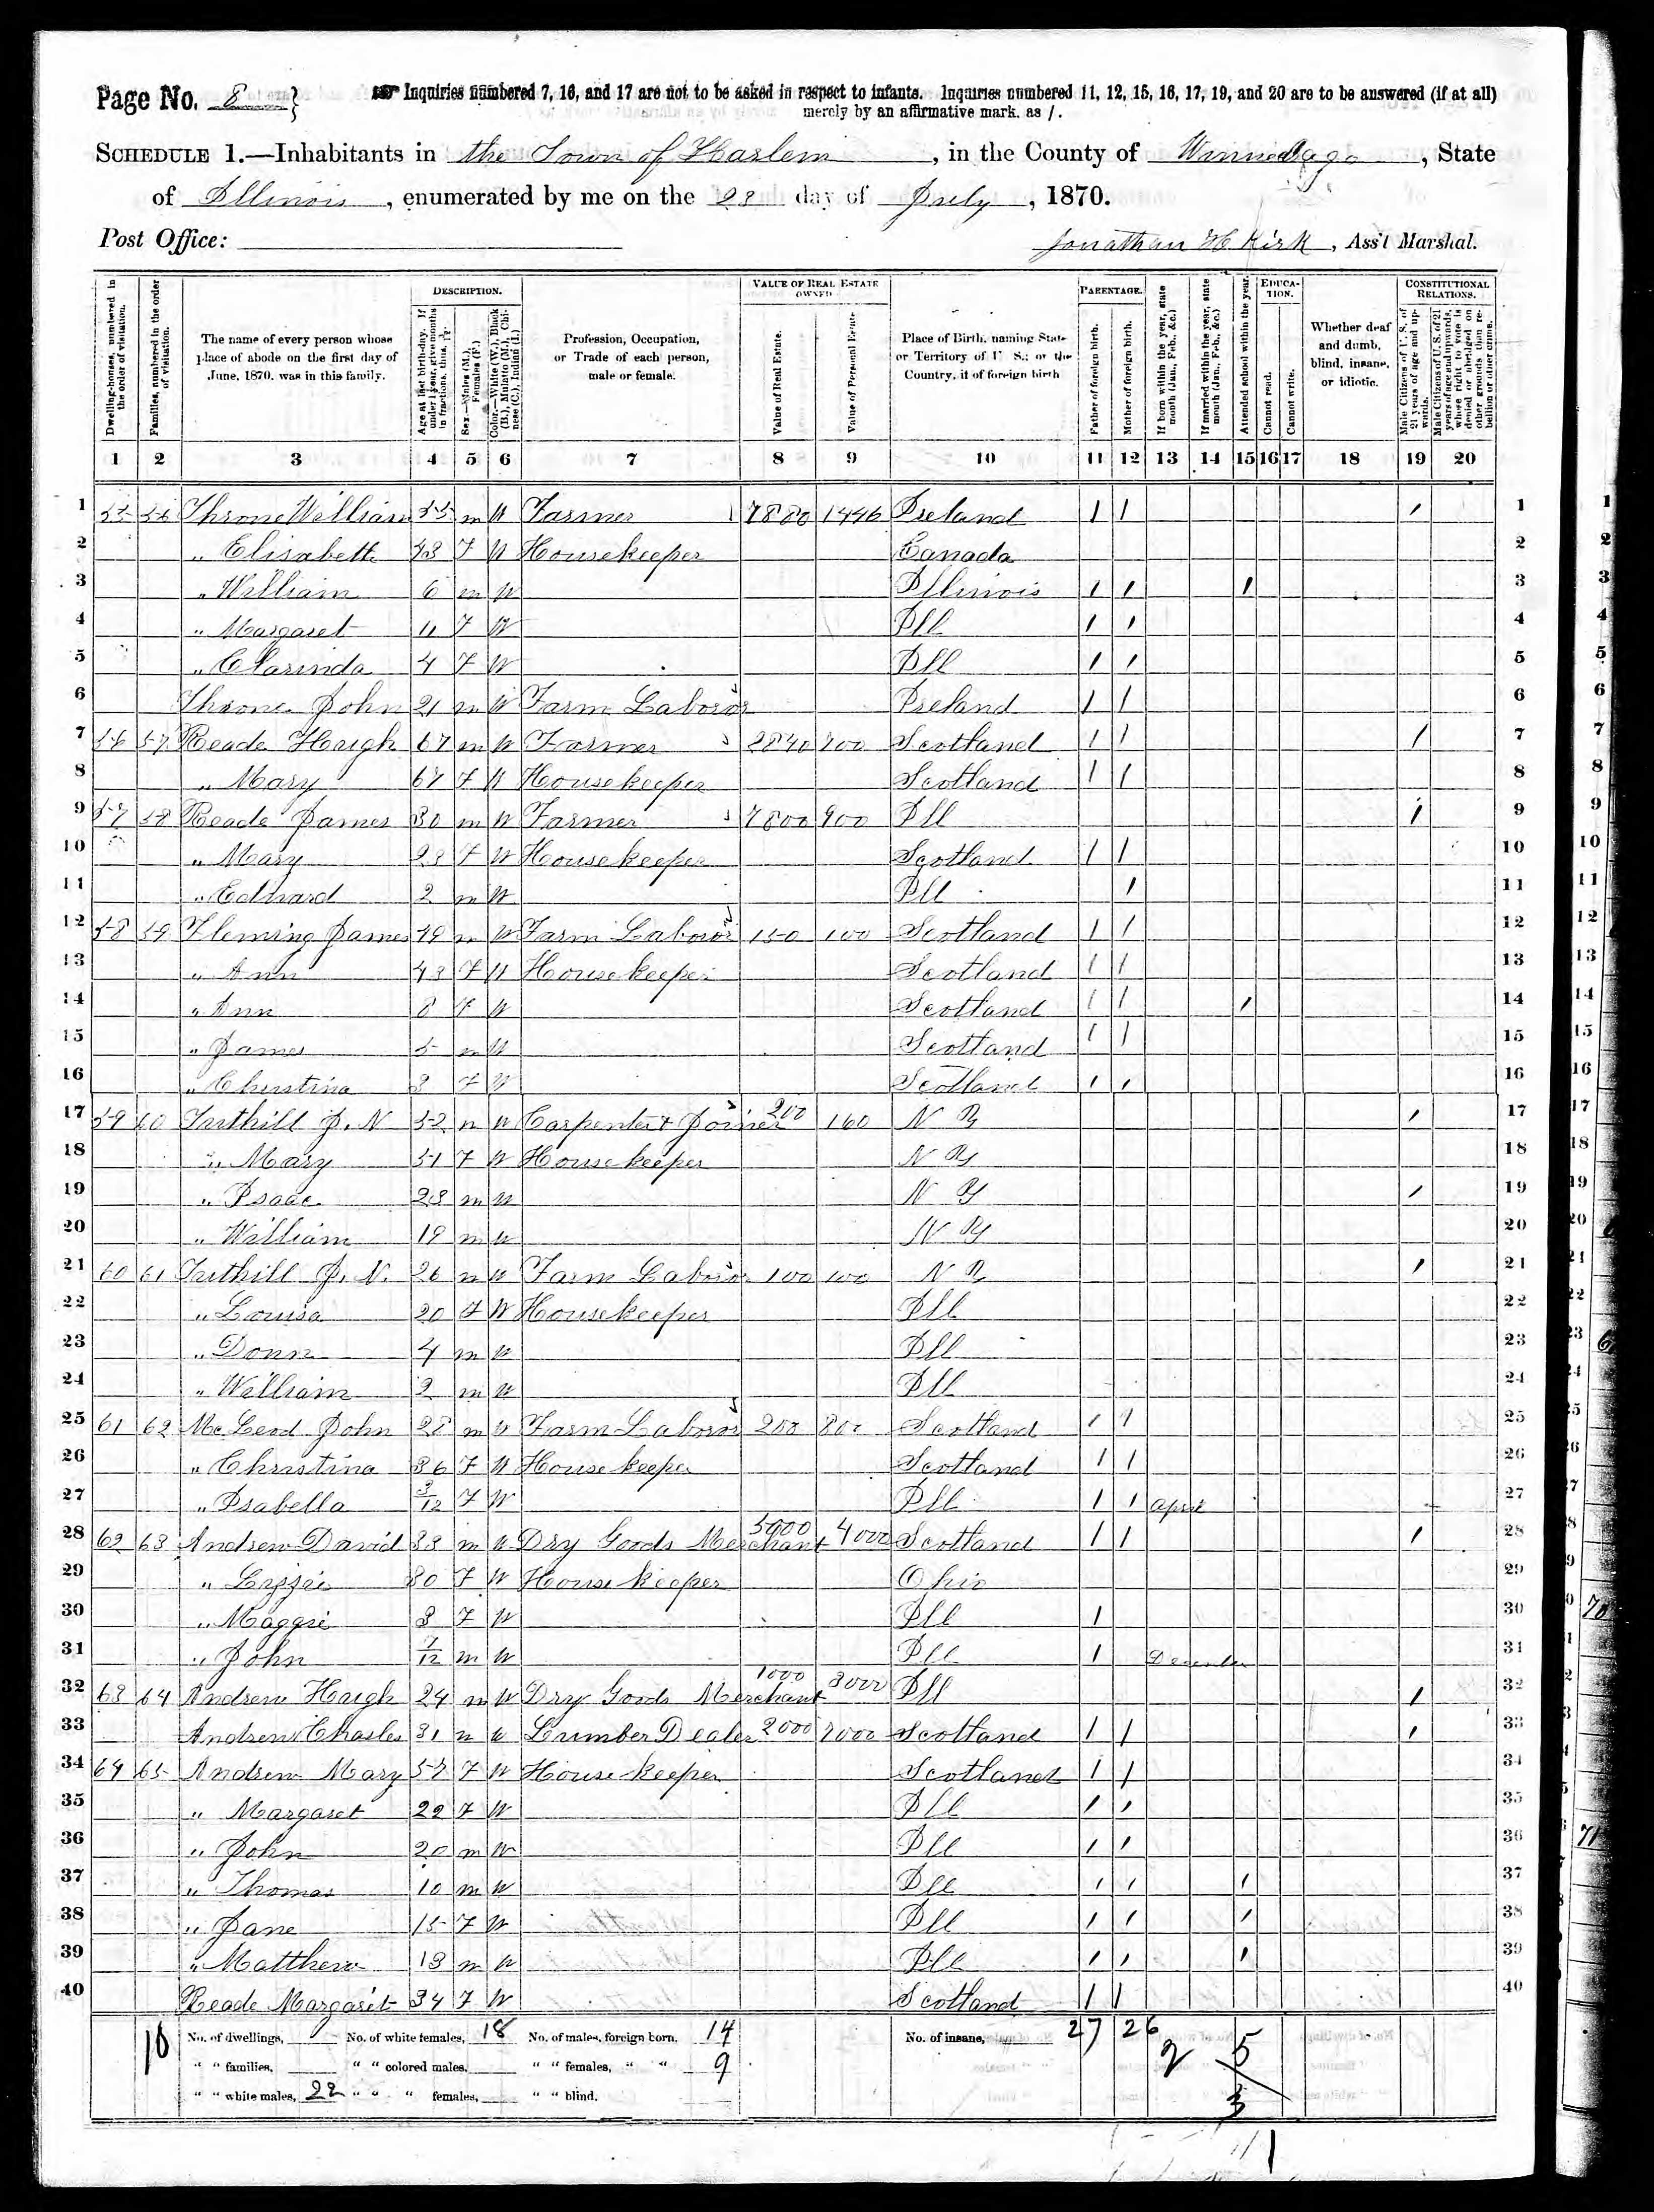 Page No. 8 }
Inquiries numbered 7, 16, and 17 are not to be asked in respect to infants. Inquiries numbered 11, 12, 15, 16, 17, 19, and 20 are to be answered (if at all)
merely by an affirmative mark, as /.
SCHEDULE 1.—Inhabitants in the Town of Harlem, in the County of Winnebago, State
of Illinois, enumerated by me on the 28 day of July, 1870.
Post Office:
Jonathan H Kirk, Ass't Marshal.
DESCRIPTION. VALUE OF REAL ESTATE OWNED PARENTAGE. EDUCATION. CONSTITUTIONAL RELATIONS.
Dwelling-houses, numbered in the order of visitation.
Families, numbered in the order of visitation.
The name of every person whose place of abode on the first day of June, 1870, was in this family.
Age at last birth-day. If under 1 year, give months in fractions, thus, 3/12
Sex.—Males (M.), Females (F.)
Color.—White (W.), Black (B.), Mulatto (M.), Chinese (C.), Indian (I.)
Profession, Occupation, or Trade of each person, male or female.
Value of Real Estate.
Value of Personal Estate.
Place of Birth, naming State or Territory of U. S.; or the Country, if of foreign birth
Father of foreign birth.
Mother of foreign birth.
If born within the year, state month (Jan., Feb., &c.)
If married within the year, state month (Jan., Feb., &c.)
Attended school within the year.
Cannot read.
Cannot write.
Whether deaf and dumb, blind, insane, or idiotic.
Male Citizens of U. S. of 21 years of age and upwards.
Male Citizens of U. S. of 21 years of age and upwards, whose right to vote is denied or abridged on other grounds than rebellion or other crime.
1 2 3 4 5 6 7 8 9 10 11 12 13 14 15 16 17 18 19 20
1 55 56 Throne William 55 m W Farmer 7880 1446 Ireland / / / 1
2 " Elisabeth 43 F W Housekeeper Canada 2
3 " William 6 m W Illinois / / / 3
4 " Margaret 11 F W Ill / / 4
5 " Clarinda 4 F W Ill / / 5
6 Throne John 21 m W Farm Laboror Ireland / / 6
7 56 57 Reade Haugh 67 m W Farmer 2840 700 Scotland / / / 7
8 " Mary 67 F W Housekeeper Scotland / / 8
9 57 58 Reade James 30 m W Farmer 7800 900 Ill / 9
10 " Mary 23 F W Housekeeper Scotland / / 10
11 " Edward 2 m W Ill / 11
12 58 59 Fleming James 49 m W Farm Laboror 150 100 Scotland / / 12
13 " Ann 43 F W Housekeeper Scotland / / 13
14 " Ann 8 F W Scotland / / / 14
15 " James 5 m W Scotland / / 15
16 " Christina 3 F W Scotland / / 16
17 59 60 Tuthill J. N 52 m W Carpenter & Joiner 200 160 N Y / 17
18 " Mary 51 F W Housekeeper N Y 18
19 " Isaac 23 m W N Y / 19
20 " William 19 m W N Y 20
21 60 61 Tuthill J. N. 26 m W Farm Laboror 100 100 N Y / 21
22 " Louisa 20 F W Housekeeper Ill 22
23 " Donn 4 m W Ill 23
24 " William 2 m W Ill 24
25 61 62 McLeod John 28 m W Farm Laboror 200 800 Scotland / / 25
26 " Christina 36 F W Housekeeper Scotland / / 26
27 " Isabella 3/12 F W Ill / / April 27
28 62 63 Andrew David 33 m W Dry Goods Merchant 5000 4000 Scotland / / / 28
29 " Lizzie 30 F W Housekeeper Ohio 29
30 " Maggie 3 F W Ill / 30
31 " John 7/12 m W Ill / December 31
32 63 64 Andrew Haugh 24 m W Dry Goods Merchant 1000 3000 Ill / 32
33 Andrew Charles 31 m W Lumber Dealer 2000 7000 Scotland / / / 33
34 64 65 Andrew Mary 57 F W Housekeeper Scotland / / 34
35 " Margaret 22 F W Ill / / 35
36 " John 20 m W Ill / / 36
37 " Thomas 10 m W Ill / / / 37
38 " Jane 15 F W Ill / / / 38
39 " Matthew 13 m W Ill / / / 39
40 Reade Margaret 34 F W Scotland / / 40
10 No. of dwellings, No. of white females, 18 No. of males, foreign born, 14 No. of insane, 27 26 2 5
" " families, " " colored males, " " females, " " 9
" " white males, 22 " " " females, " " blind, 3